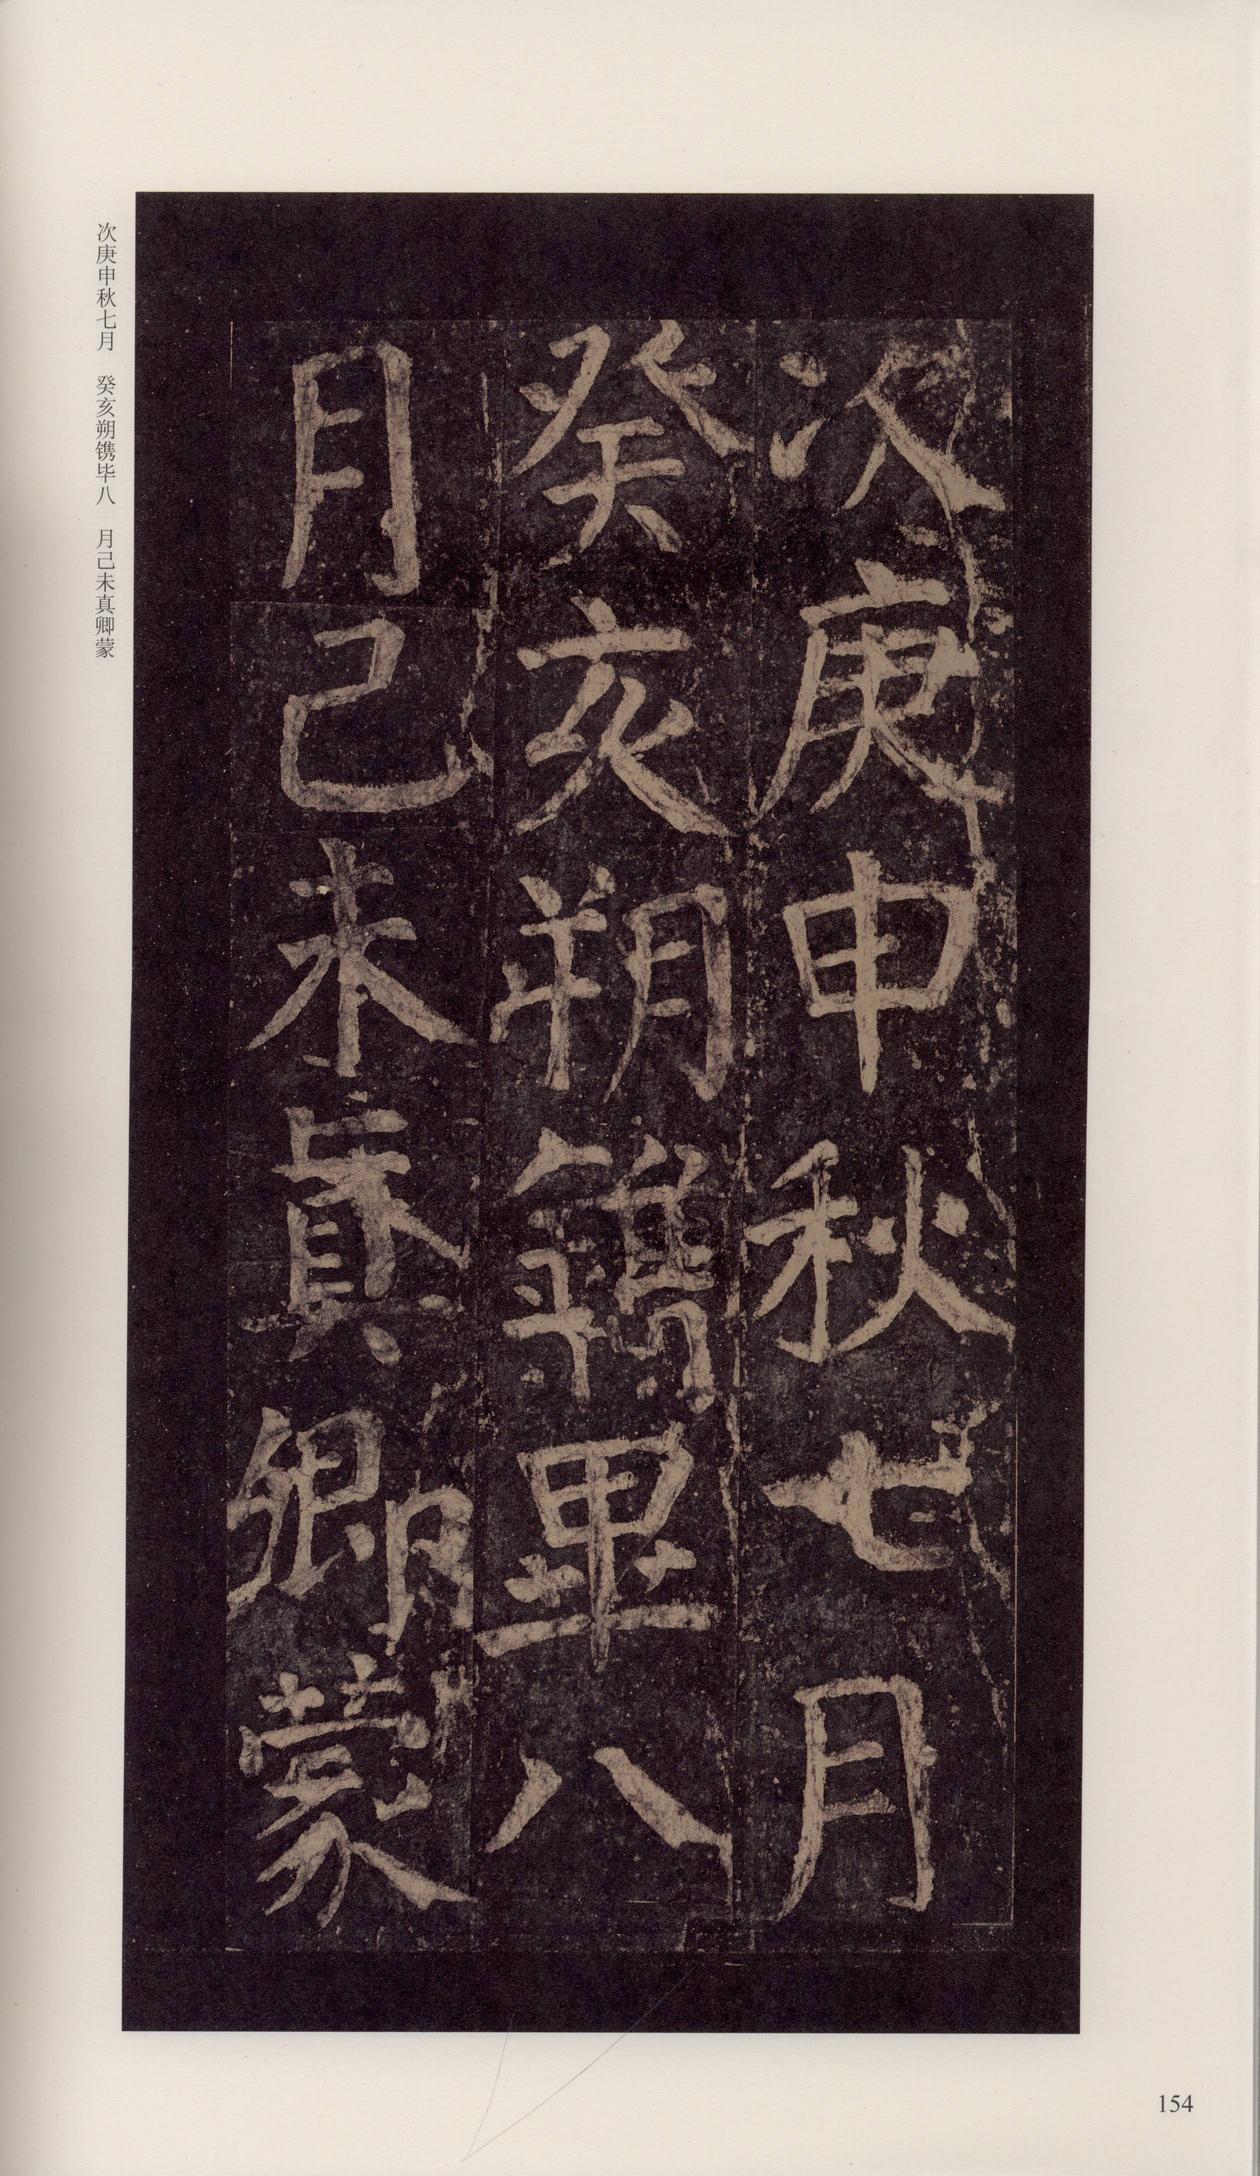 次庚申秋七月
癸亥朔鐫畢八
月己未真卿蒙
次庚申秋七月　癸亥朔镌毕八　月己未真卿蒙
154